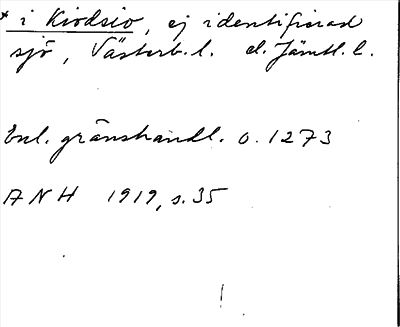 * i Kiodsio, ej identifierad
sjö, Västerb. l. el. Jämtl. l.
Enl. gränshandl. o. 1273
ANH 1919, s. 35